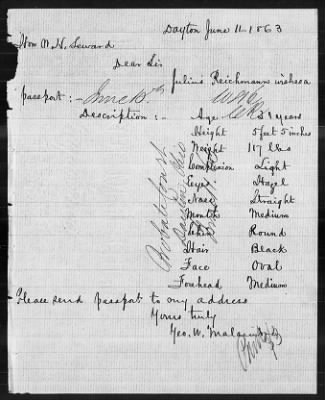 Dayton June 11 1863
Hon W. H. Seward
Dear Sir
Julius Reichmann wishes a
passport:-
Description :- Age 31 years
Height 5 feet 5 inches
Weight 117 lbs
Complexion Light
Eyes Hazel
Nose Straight
Mouth Medium
Chin Round
Hair Black
Face Oval
Forehead Medium
Please send passport to my address
Yours truly
Geo. W.
Probate Court